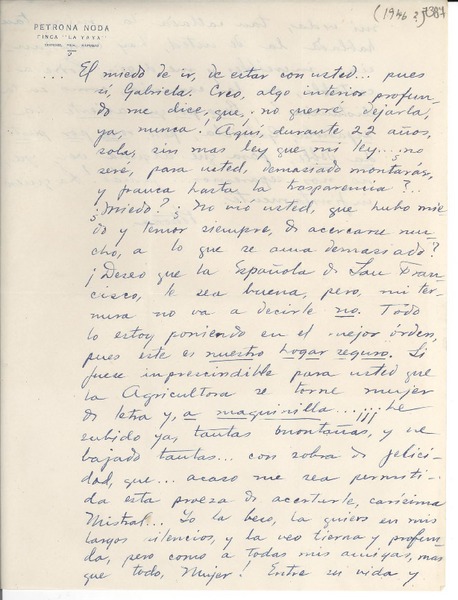 (1946?) 387
PETRONA NODA
FINCA "LA YAYA"
... El miedo de ir, de estar con usted... pues
si, Gabriela. Creo, algo interior profun-
do me dice, que, no querré dejarla,
ya, nunca. Aquí, durante 22 años,
sola, sin mas ley que mi ley... ¿no
seré, para usted, demasiado montaráz,
y franca hasta la trasparencia?..
¿Miedo? ¿No vió usted, que hubo mie
do y temor siempre, de acercarse mu-
cho, a lo que se ama demasiado?
¡Deseo que la Española de San Fran-
cisco, le sea buena, pero, mi ter-
nura no va a decirle no. Todo
lo estoy poniendo en el mejor órden,
pues este es nuestro hogar seguro. Si
fuese imprescindible para usted que
la Agricultora se torne mujer
de letra y, a maquinilla....¡¡¡ he
subido ya, tantas montañas, y he
bajado tantas... con sobra de felici-
dad, que... acaso me sea permiti-
da esta proeza de acertarle, carísima
Mistral... Yo la beso, la quiero en mis
largos silencios, y la veo tierna y profun-
da, pero como a todas mis amigas, mas
que todo, Mujer! Entre su vida y